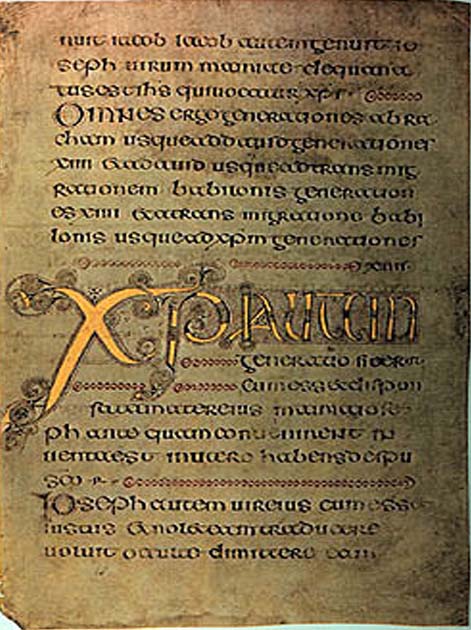 nuit iacob Iacob autem genuit io
seph uirum mariae de qua na
tus est ihs qui uocatur xps
Omnes ergo generationes abra
cham usque ad dauid generationes
xiiii et a dauid usque ad transmig
rationem babilonis generation
es xiiii et a trans migratione babi
lonis usque ad xpm generationes
xiiii
XPI AUTEM
generatio sic erat
cum esset dispon
sata mater eius maria iose
ph ante quam conuenirent in
uenta est in utero habens de spu
sco
Ioseph autem uir eius cum esset
iustus et nollet eam traducere
uoluit occulte dimittere eam